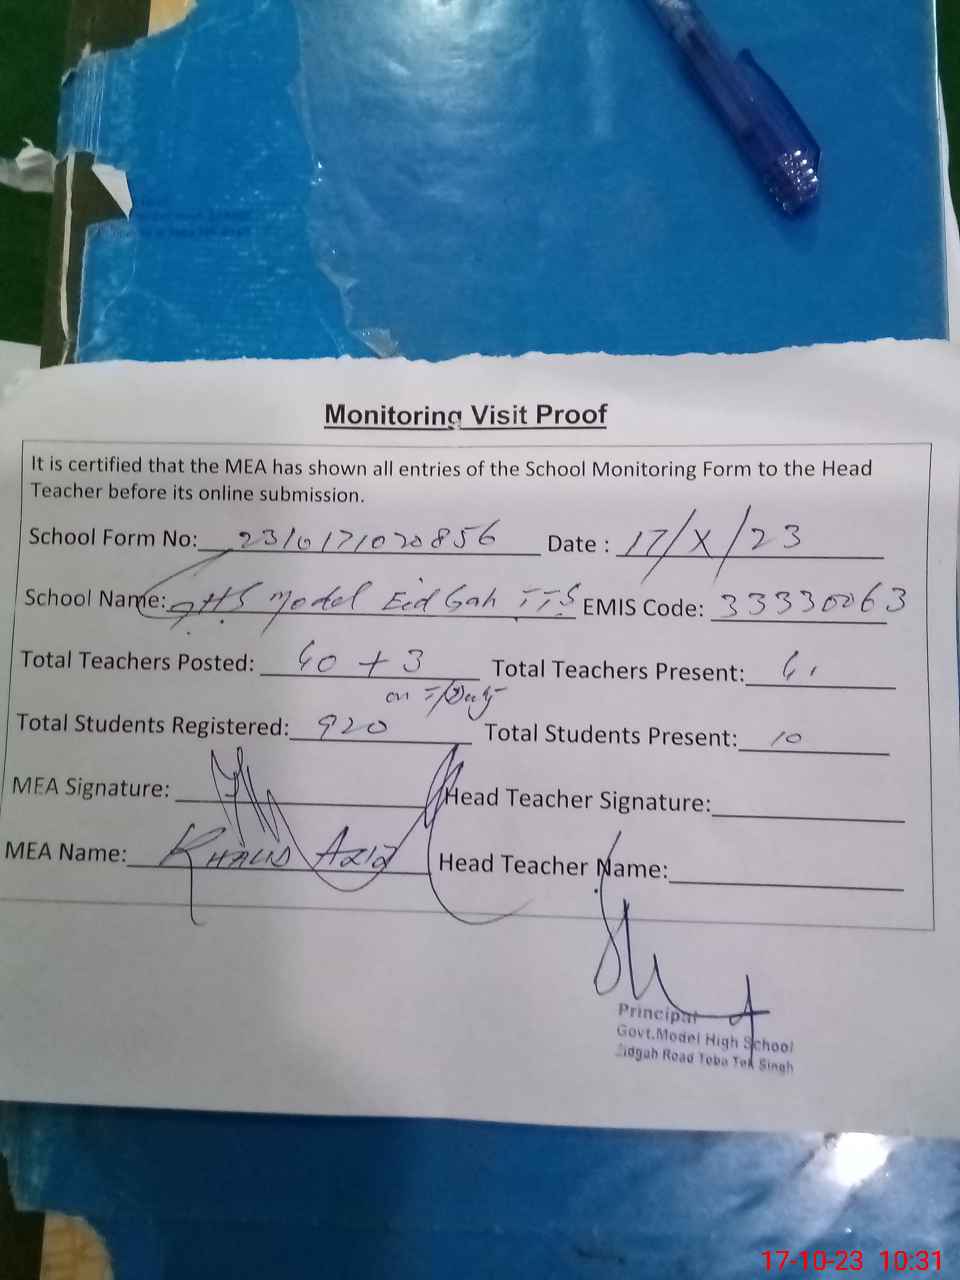 Monitoring Visit Proof
It is certified that the MEA has shown all entries of the School Monitoring Form to the Head
Teacher before its online submission.
School Form No: 2310171020856 Date : 17/X/23
School Name: GHS Model Eid Gah TTS EMIS Code: 33330063
Total Teachers Posted: 40 + 3 Total Teachers Present:
on T/Duty
Total Students Registered: 920 Total Students Present: 10
MEA Signature: Head Teacher Signature:
MEA Name: KHALID AZIZ Head Teacher Name:
Principal
Govt.Model High School
Eidgah Road Toba Tek Singh
17-10-23 10:31